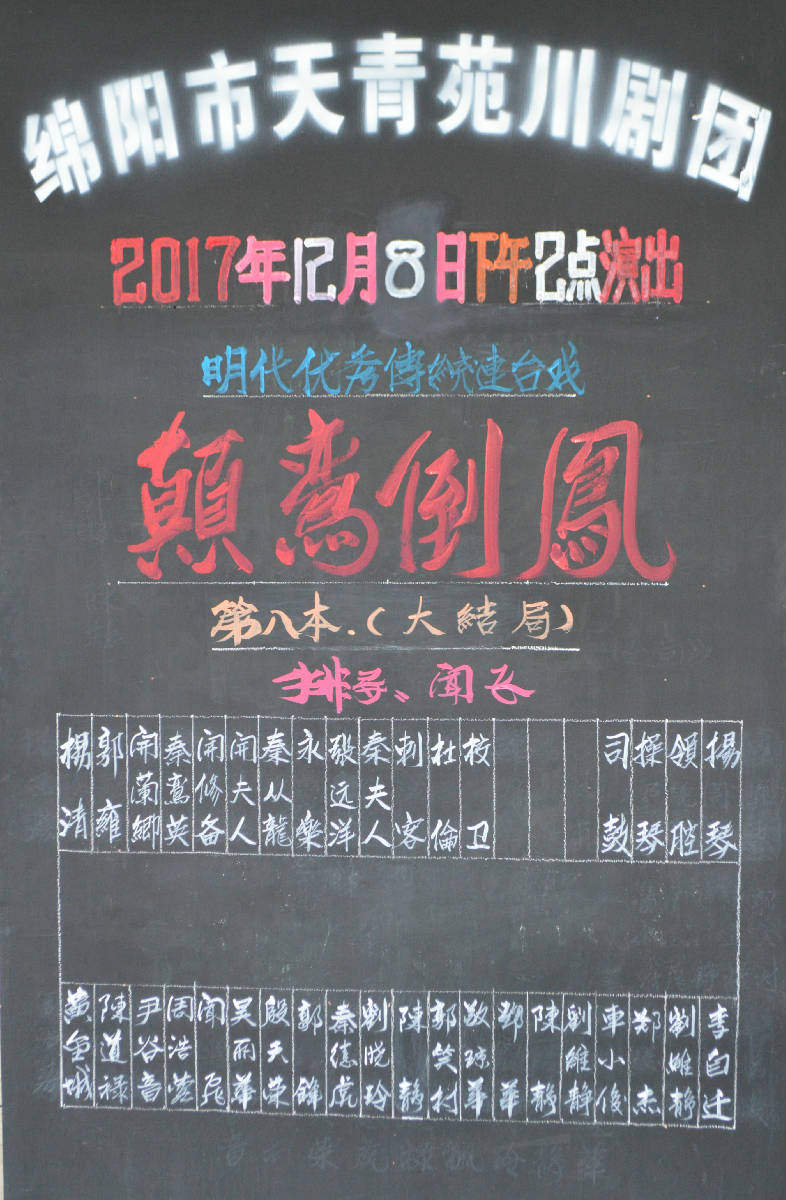 绵阳市天青苑川剧团
2017年12月8日下午2点演出
明代优秀傳統連台戏
顛鸾倒鳳
第八本.(大結局)
排导、闻飞
楊清 郭雍 開蘭鄉 秦鸞英 開修备 開夫人 秦从龍 永樂 張远洋 秦夫人 刺客 杜倫 校卫 司鼓 操琴 領腔 揚琴
黄金城 陳道禄 尹谷音 周浩 闻飛 吴丽華 殷天荣 郭餘 秦德虎 劉晓玲 陳靜 郭笑村 敬琼華 鄧華 陳靜 劉維靜 車小俊 郑杰 劉維靜 李自迁